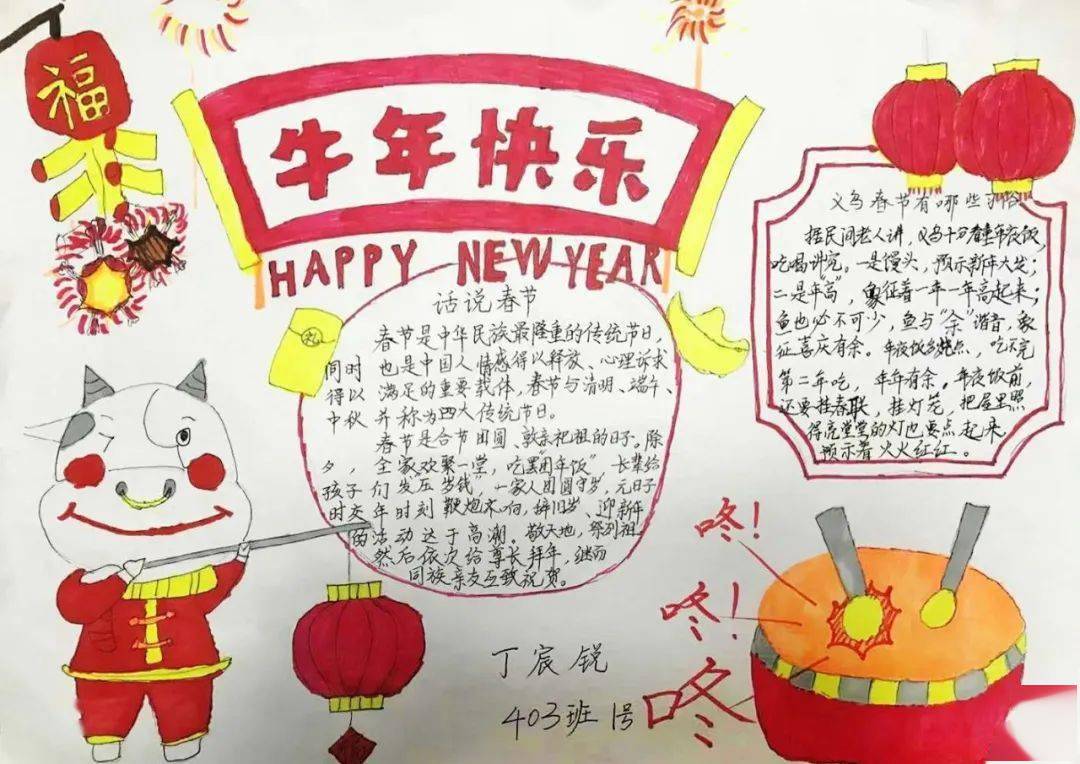 福
牛年快乐
HAPPY NEW YEAR
话说春节
春节是中华民族最隆重的传统节日,
同时也是中国人情感得以释放、心理诉求
得以满足的重要载体,春节与清明、端午、
中秋并称为四大传统节日。
春节是合节团圆、敦亲祀祖的日子。除
夕,全家欢聚一堂,吃罢"团年饭",长辈给
孩子们发"压岁钱",一家人团圆守岁,元日子
时交年时刻鞭炮齐响,辞旧岁、迎新年
的活动达于高潮。敬天地,祭列祖
然后依次给尊长拜年,继而
同族亲友互致祝贺。
义乌春节有哪些习俗
据民间老人讲,义乌十分看重年夜饭,
吃喝讲究。一是馒头,预示新年大发;
二是"年高",象征着一年一年高起来;
鱼也必不可少,鱼与"余"谐音,象
征喜庆有余。年夜饭多烧点,吃不完
第二年吃,年年有余。年夜饭前,
还要挂春联,挂灯笼,把屋里照
得亮堂堂的灯也要点起来
预示着火火红红。
咚!
咚!
咚
丁宸锐
403班 1号
礼